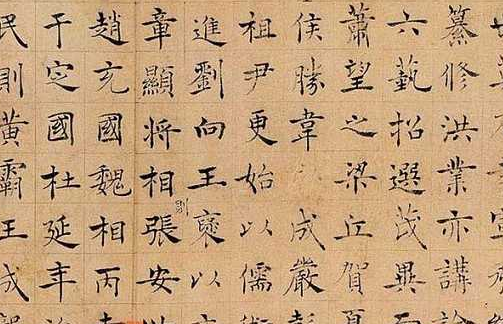 纂修洪業亦講論
六藝招選茂異而
蕭望之梁丘賀夏
侯勝韋成嚴彭
祖尹更始以儒術
進劉向王褒以文
章顯將相則張安世
趙充國魏相丙吉
于定國杜延年治
民則黃霸王成龔